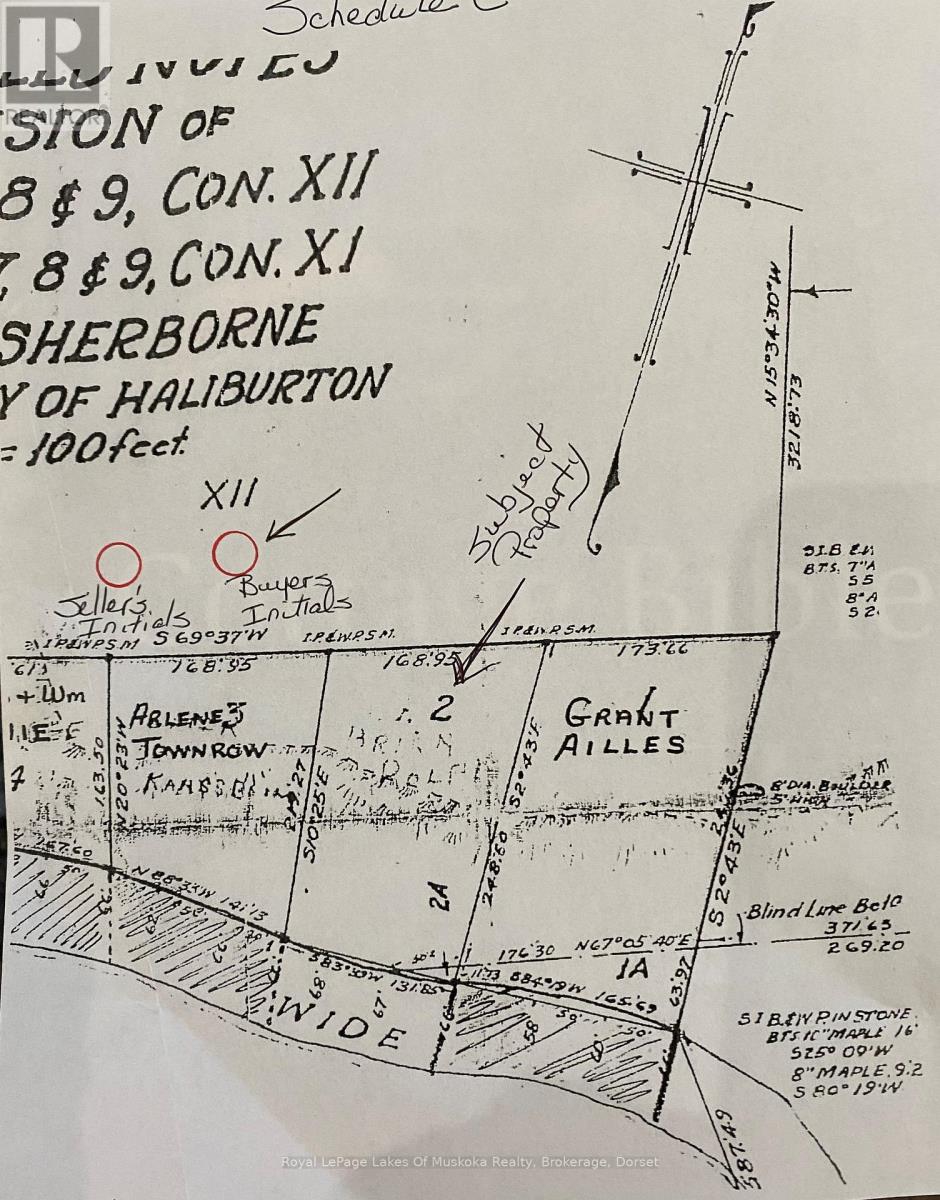 Schedule C
REALTOR
SION OF
8 & 9, CON. XII
7, 8 & 9, CON. XI
SHERBORNE
Y OF HALIBURTON
= 100 feet.
XII
Subject
Property
N 15° 34' 30" W
3218.73
Seller's
Initials
Buyers
Initials
S.I.B.
B.T.S. 7" A
S 5
8" A
S 2
I.P.&W.P.S.M
S 69° 37' W
I.P.&W.P.S.M.
I.P.&W.P.S.M.
168.95
168.95
173.66
+ Wm
4
163.50
N 20° 23' W
ARLENE
TOWNROW
3
S 10° 25' E
2
BRIAN
ROLPH
S 2° 43' E
248.60
2A
1
GRANT
AILLES
8' DIA. BOULDER
5' HIGH
S 2° 43' E
157.60
141.13
S 83° 50' W
131.85
176.30
N 67° 05' 40" E
Blind Line
371.65
269.20
1A
S 84° 19' W
165.69
63.97
66
50'
66
68
67
WIDE
58
59
60
50'
S I B & W P. IN STONE.
B.T.S. 10" MAPLE 16'
S 25° 09' W
8" MAPLE, 9.2
S 80° 19' W
587.49
Royal LePage Lakes Of Muskoka Realty, Brokerage, Dorset